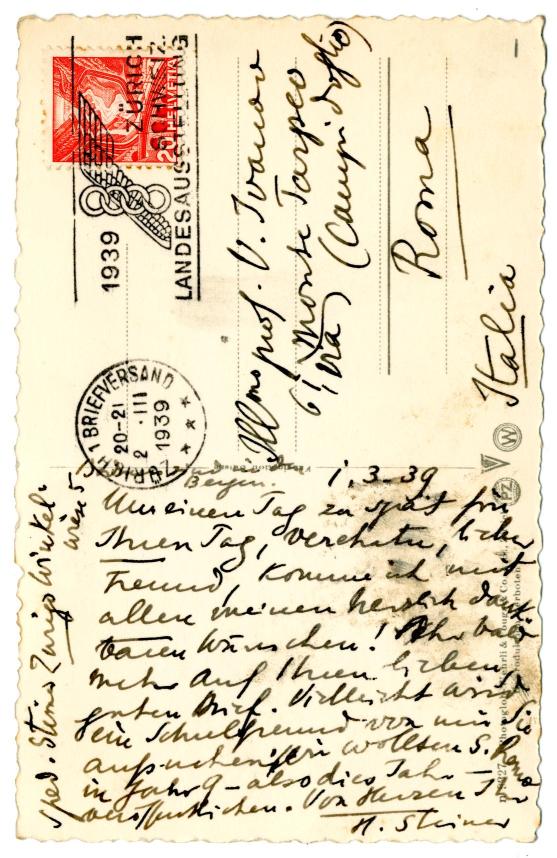 ZÜRICH
SCHWEIZ.
LANDESAUSSTELLUNG
1939
HELVETIA
20
ZÜRICH 1 BRIEFVERSAND
20-21
2 · III
1939
Ill.mo prof. V. Ivanov
61 Monte Tarpeo
via (Campidoglio)
Roma
Italia
Bergen. 1, 3 - 39
Um einen Tag zu spät für
Ihren Tag, verehrter, lieber
Freund, komme ich mit
allen meinen herzlich dank
baren Wünschen! Sehr bald
mehr auf Ihren lieben
guten Brief. Vielleicht wird
ein Schulfreund von mir Sie
aufsuchen. Wir wollten
in Jahr 9 - also dies Jahr -
veröffentlichen. Von Herzen Ihr
H. Steiner
Sped. Steiner Zürich Winkel
wiese 5
W
PZ